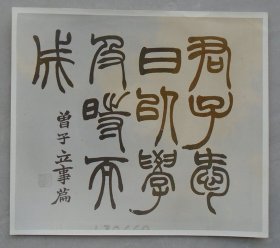 君子愛
日以學
及時而
成
曾子立事篇